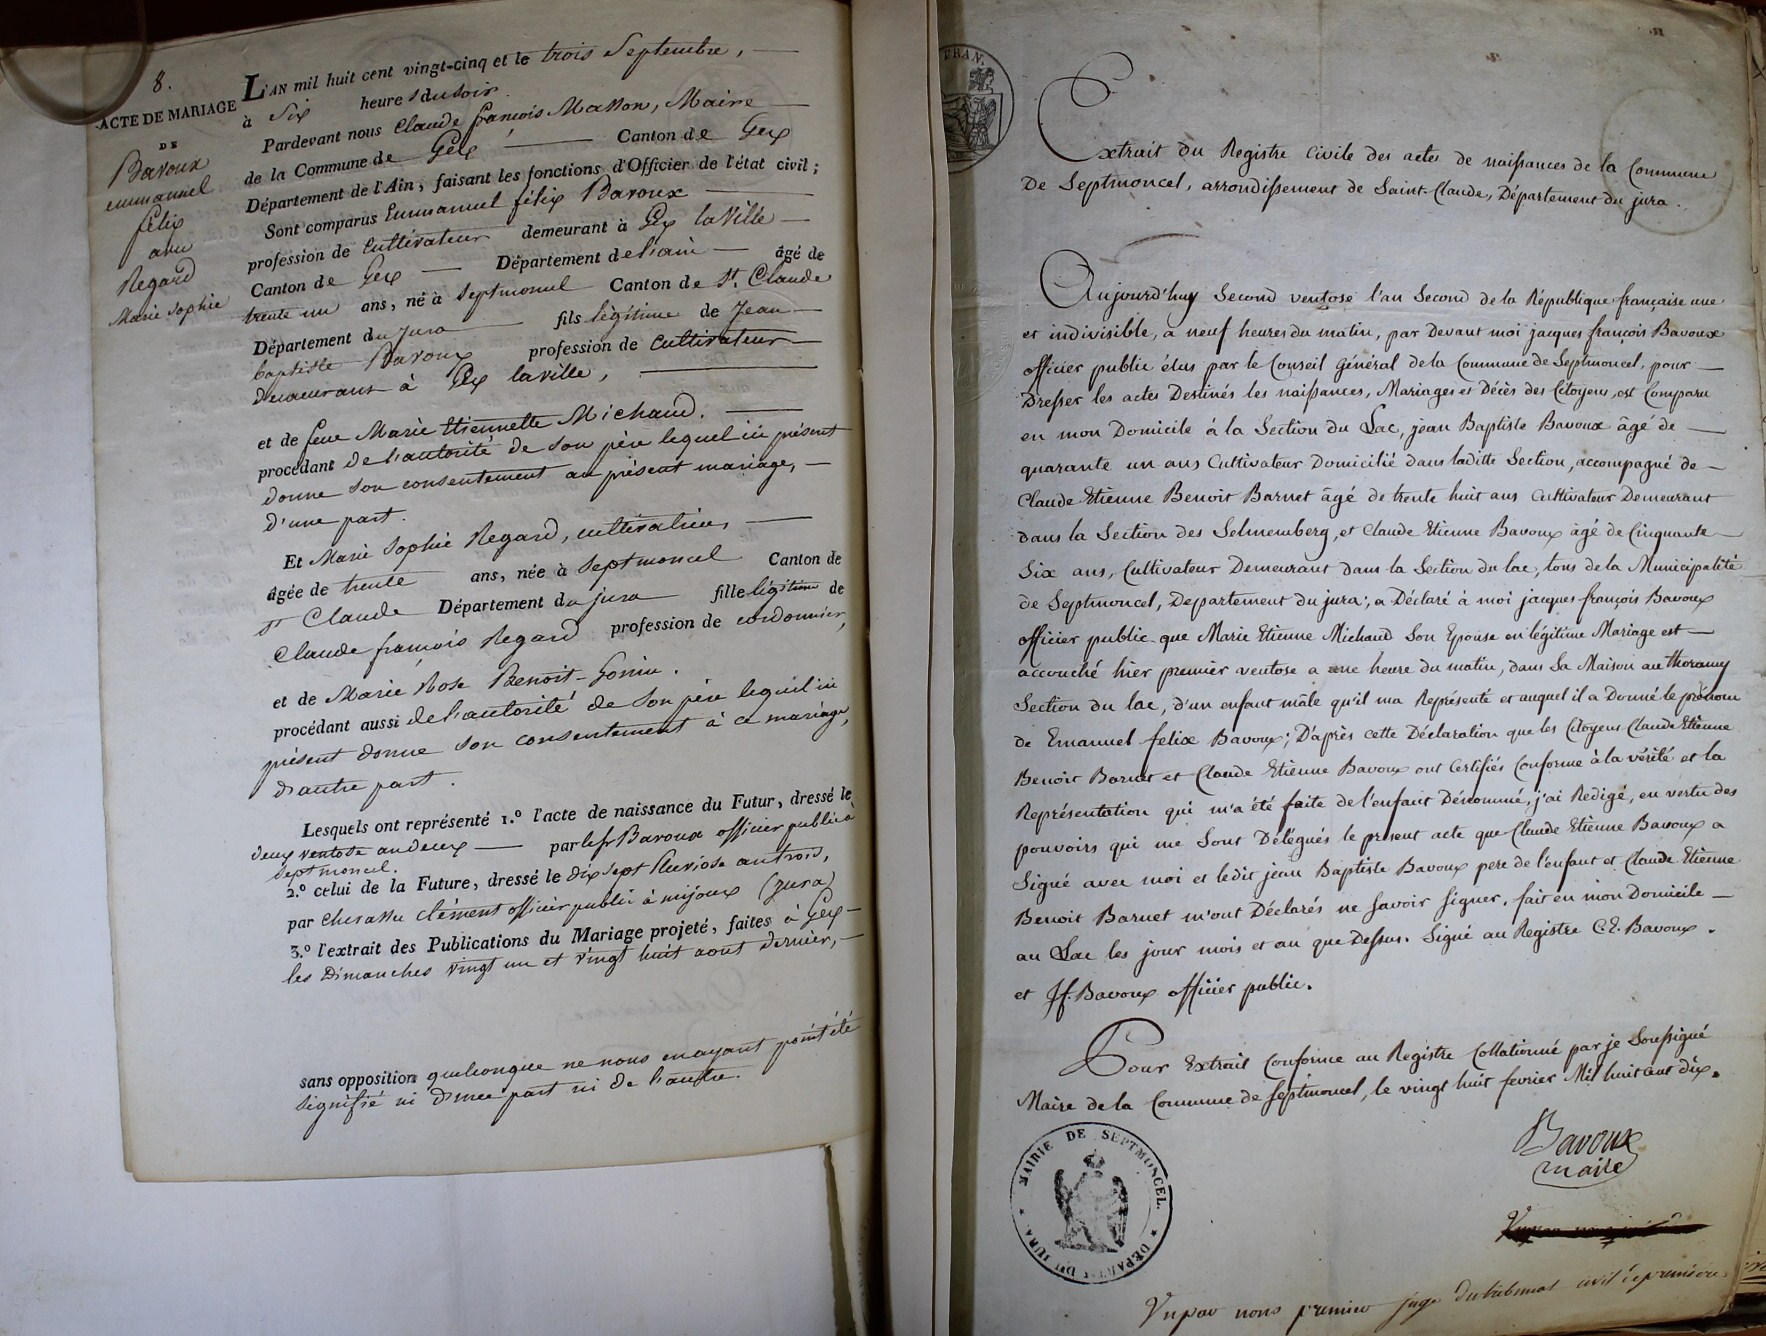 8.
ACTE DE MARIAGE
DE
Bavoux
emmanuel
félix
avec
Regard
Marie Sophie
L'AN mil huit cent vingt-cinq et le trois Septembre,
à Six heures du soir.
Pardevant nous Claude françois Masson, Maire
de la Commune de Gex Canton de Gex
Département de l'Ain, faisant les fonctions d'Officier de l'état civil;
Sont comparus Emmanuel félix Bavoux
profession de Cultivateur demeurant à Gex la Ville
Canton de Gex Département de l'ain âgé de
trente un ans, né à Septmoncel Canton de St. Claude
Département du Jura fils légitime de Jean
baptiste Bavoux profession de Cultivateur
demeurant à Gex la ville,
et de feue Marie Etiennette Michaud.
procédant de l'autorité de son père lequel ici présent
donne son consentement au présent mariage,
d'une part.
Et Marie Sophie Regard, cultivatrice,
âgée de trente ans, née à Septmoncel Canton de
St Claude Département du jura fille légitime de
Claude françois Regard profession de cordonnier,
et de Marie Rose Benoit-Gonin.
procédant aussi de l'autorité de son père lequel ici
présent donne son consentement à ce mariage,
d'autre part.
Lesquels ont représenté 1.º l'acte de naissance du Futur, dressé le
deux ventose an deux par le Sr Bavoux officier public à
Septmoncel.
2.º celui de la Future, dressé le dix sept pluviose an trois,
par Chevassu Clément officier public à mijoux (jura)
3.º l'extrait des Publications du Mariage projeté, faites à Gex
les Dimanches vingt un et vingt huit aout dernier,
sans opposition quelconque ne nous en ayant point été
signifié ni d'une part ni de l'autre.
FRAN.
Extrait du Registre Civile des actes de naissances de la Commune
De Septmoncel, arrondissement de Saint-Claude, Département du jura.
Aujourd'huy Second ventose l'an Second de la République française une
et indivisible, a neuf heures du matin, par Devant moi jacques françois Bavoux
officier public élus par le Conseil Général de la Commune de Septmoncel, pour
Dresser les actes Destinés les naissances, Mariages et Décès des Citoyens, est Comparu
en mon Domicile à la Section du Lac, jean Baptiste Bavoux âgé de
quarante un ans Cultivateur Domicilié dans laditte Section, accompagné de
Claude Etienne Benoit Barnet âgé de trente huit ans Cultivateur Demeurant
dans la Section des Selmemberg, et Claude Etienne Bavoux âgé de Cinquante
Six ans, Cultivateur Demeurant dans la Section du lac, tous de la Municipalité
de Septmoncel, Departement du jura; a Déclaré à moi jacques françois Bavoux
officier public que Marie Etienne Michaud Son Epouse en légitime Mariage est
accouché hier premier ventose a une heure du matin, dans Sa Maison au thoramy
Section du lac, d'un enfant mâle qu'il ma Représenté et auquel il a Donné le prénom
de Emanuel felix Bavoux; D'après cette Déclaration que les Citoyens Claude Etienne
Benoit Barnet et Claude Etienne Bavoux ont Certifiés Conforme à la vérité et la
Représentation qui m'a été faite de l'enfant Dénommé, j'ai Rédigé, en vertu des
pouvoirs qui me Sont Délégués le present acte que Claude Etienne Bavoux a
Signé avec moi et ledit jean Baptiste Bavoux pere de l'enfant et Claude Etienne
Benoit Barnet m'ont Déclarés ne Savoir Signer, fait en mon Domicile
au Lac les jour mois et an que Dessus. Signé au Registre C.E. Bavoux.
et Jf. Bavoux officier public.
Pour Extrait Conforme au Registre Collationné par je Soussigné
Maire de la Commune de Septmoncel, le vingt huit fevrier Mil huit cent dix.
Bavoux
maire
MAIRIE DE SEPTMONCEL. DÉPART. DU JURA.
Vu par nous premier juge du tribunal civil de premiere